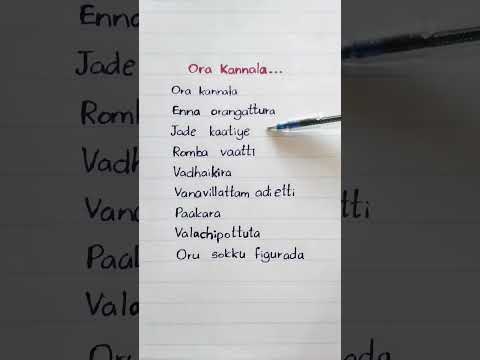 Ora Kannala...
Ora kannala
Enna orangattura
Jade kaatiye
Romba vaatti
Vadhaikira
Vanavillattam adietti
Paakara
Valachipottuta
Oru sokku figurada